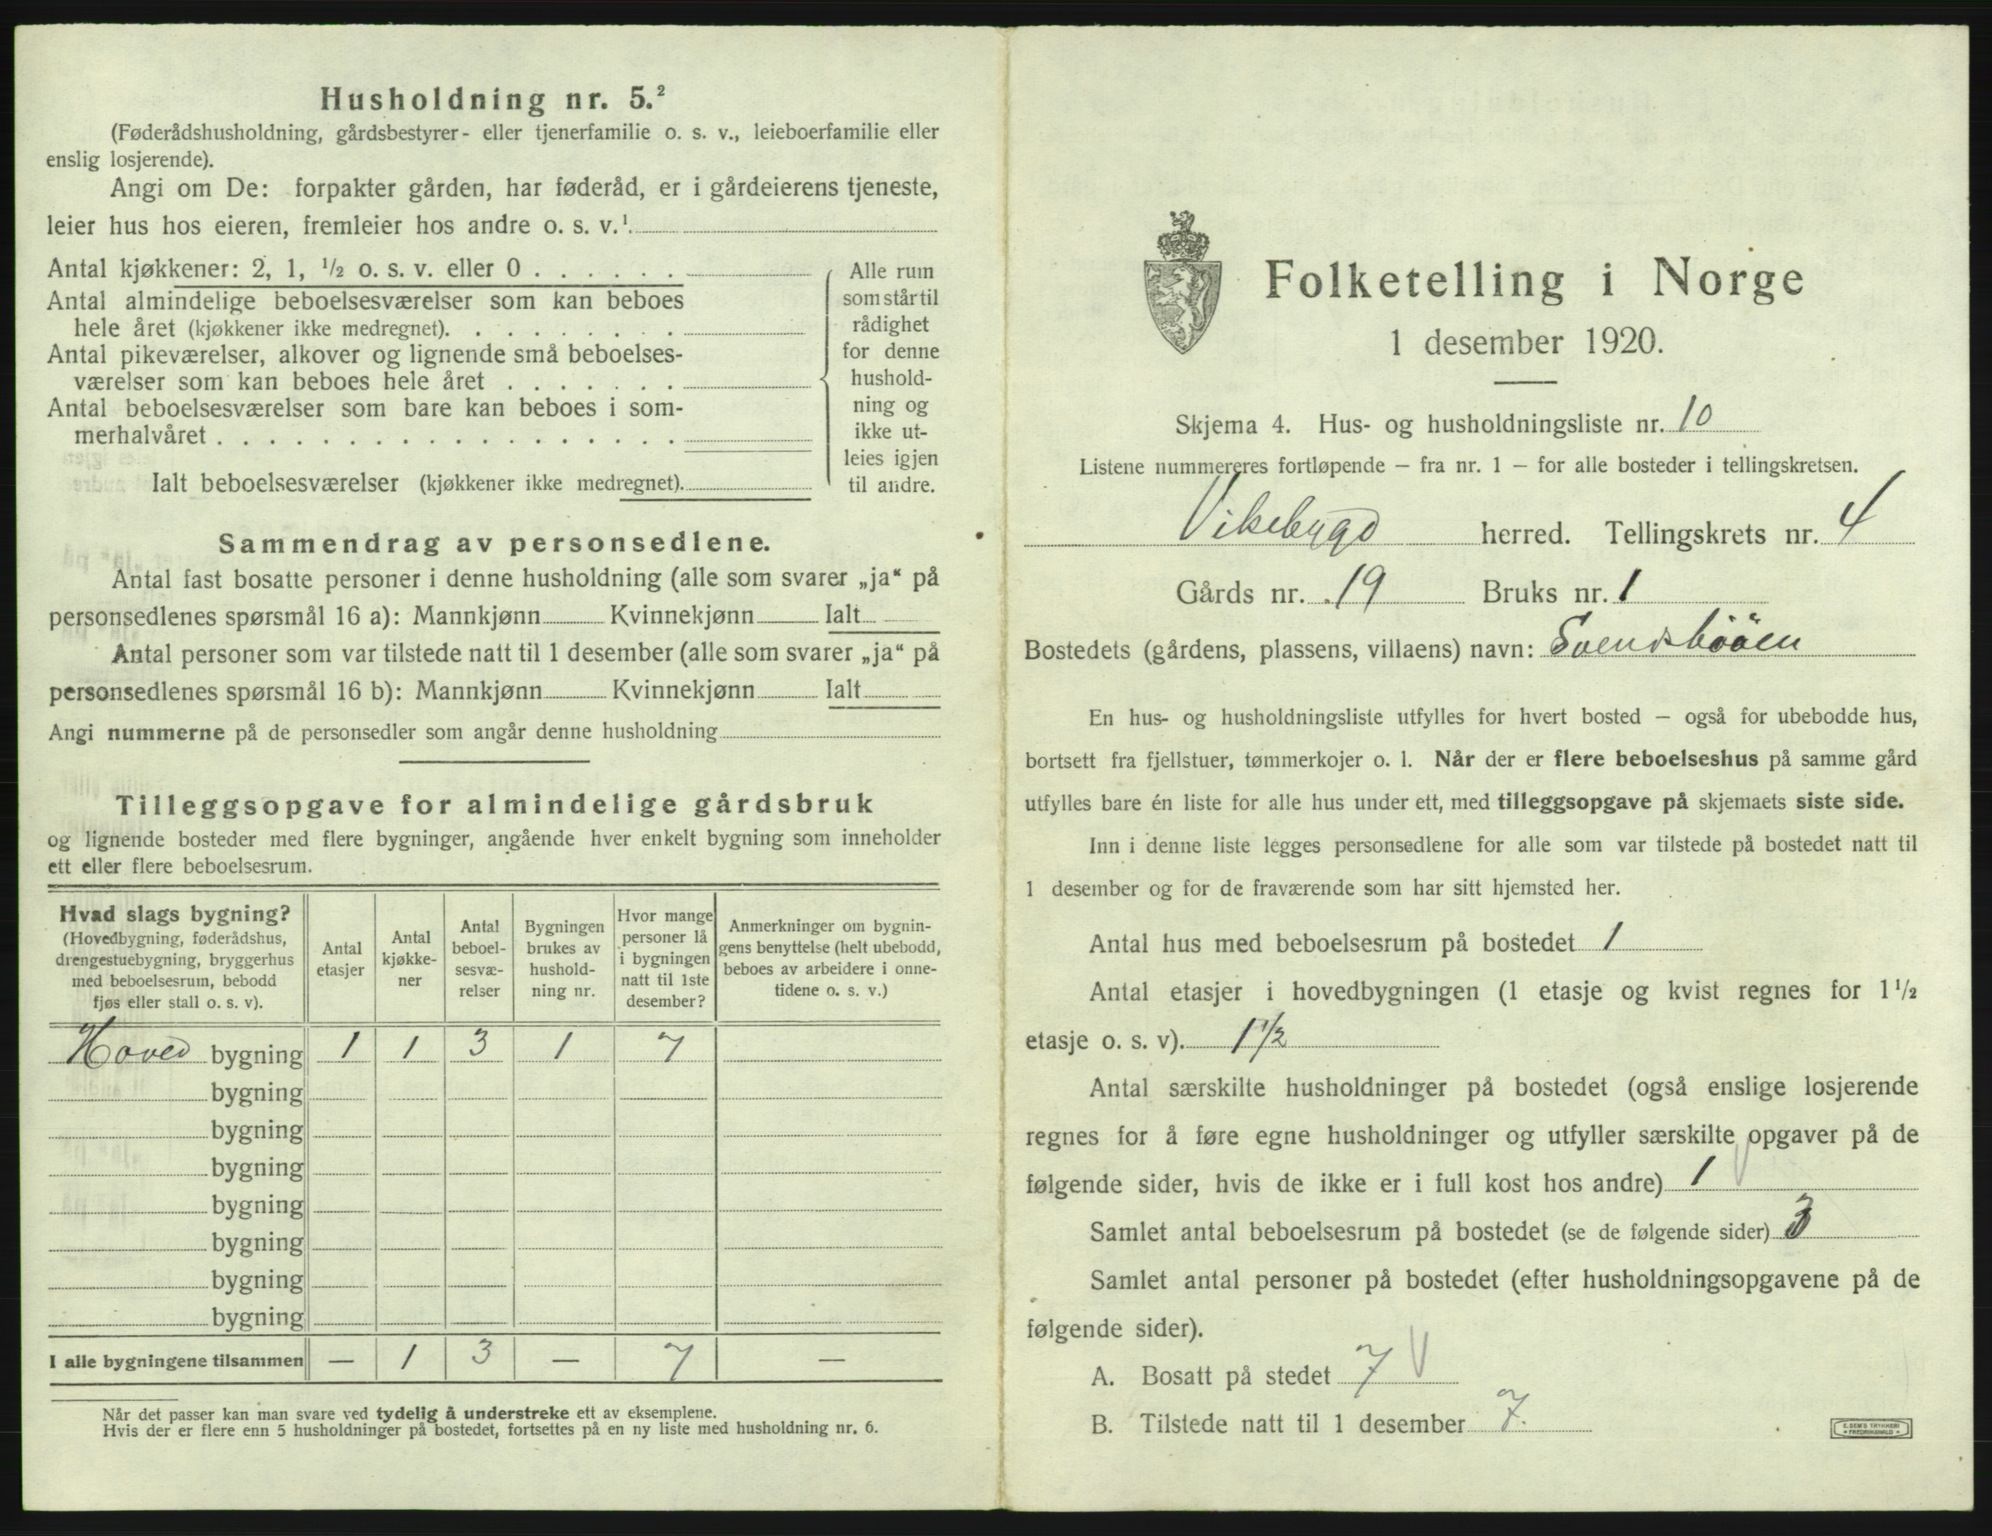 Husholdning nr. 5.²
(Føderådshusholdning, gårdsbestyrer- eller tjenerfamilie o. s. v., leieboerfamilie eller
enslig losjerende).
Angi om De: forpakter gården, har føderåd, er i gårdeierens tjeneste,
leier hus hos eieren, fremleier hos andre o. s. v.¹.
Antal kjøkkener: 2, 1, ½ o. s. v. eller 0 . . . . . .
Antal almindelige beboelsesværelser som kan beboes
hele året (kjøkkener ikke medregnet). . . . . . . . .
Antal pikeværelser, alkover og lignende små beboelses-
værelser som kan beboes hele året . . . . . . .
Antal beboelsesværelser som bare kan beboes i som-
merhalvåret . . . . . . . . . . . . . . . . . .
Ialt beboelsesværelser (kjøkkener ikke medregnet).
Alle rum
som står til
rådighet
for denne
hushold-
ning og
ikke ut-
leies igjen
til andre.
Sammendrag av personsedlene.
Antal fast bosatte personer i denne husholdning (alle som svarer „ja“ på
personsedlenes spørsmål 16 a): Mannkjønn Kvinnekjønn Ialt
Antal personer som var tilstede natt til 1 desember (alle som svarer „ja“ på
personsedlenes spørsmål 16 b): Mannkjønn Kvinnekjønn Ialt
Angi nummerne på de personsedler som angår denne husholdning
Tilleggsopgave for almindelige gårdsbruk
og lignende bosteder med flere bygninger, angående hver enkelt bygning som inneholder
ett eller flere beboelsesrum.
Hvad slags bygning?
(Hovedbygning, føderådshus,
drengestuebygning, bryggerhus
med beboelsesrum, bebodd
fjøs eller stall o. s. v).
Antal
etasjer
Antal
kjøkke-
ner
Antal
beboel-
sesvæ-
relser
Bygningen
brukes av
hushold-
ning nr.
Hvor mange
personer lå
i bygningen
natt til 1ste
desember?
Anmerkninger om bygnin-
gens benyttelse (helt ubebodd,
beboes av arbeidere i onne-
tidene o. s. v.)
Hoved bygning 1 1 3 1 7
bygning
bygning
bygning
bygning
bygning
bygning
bygning
I alle bygningene tilsammen — 1 3 — 7 —
Når det passer kan man svare ved tydelig å understreke ett av eksemplene.
Hvis der er flere enn 5 husholdninger på bostedet, fortsettes på en ny liste med husholdning nr. 6.
Folketelling i Norge
1 desember 1920.
Skjema 4. Hus- og husholdningsliste nr. 10
Listene nummereres fortløpende – fra nr. 1 – for alle bosteder i tellingskretsen.
Vikebygd herred. Tellingskrets nr. 4
Gårds nr. 19 Bruks nr. 1
Bostedets (gårdens, plassens, villaens) navn: Svendsbööen
En hus- og husholdningsliste utfylles for hvert bosted – også for ubebodde hus,
bortsett fra fjellstuer, tømmerkojer o. l. Når der er flere beboelseshus på samme gård
utfylles bare én liste for alle hus under ett, med tilleggsopgave på skjemaets siste side.
Inn i denne liste legges personsedlene for alle som var tilstede på bostedet natt til
1 desember og for de fraværende som har sitt hjemsted her.
Antal hus med beboelsesrum på bostedet 1
Antal etasjer i hovedbygningen (1 etasje og kvist regnes for 1½
etasje o. s. v). 1½
Antal særskilte husholdninger på bostedet (også enslige losjerende
regnes for å føre egne husholdninger og utfyller særskilte opgaver på de
følgende sider, hvis de ikke er i full kost hos andre) 1
Samlet antal beboelsesrum på bostedet (se de følgende sider) 3
Samlet antal personer på bostedet (efter husholdningsopgavene på de
følgende sider).
A. Bosatt på stedet 7
B. Tilstede natt til 1 desember 7.
E. SEM'S TRYKKERI
• FREDRIKSHALD •